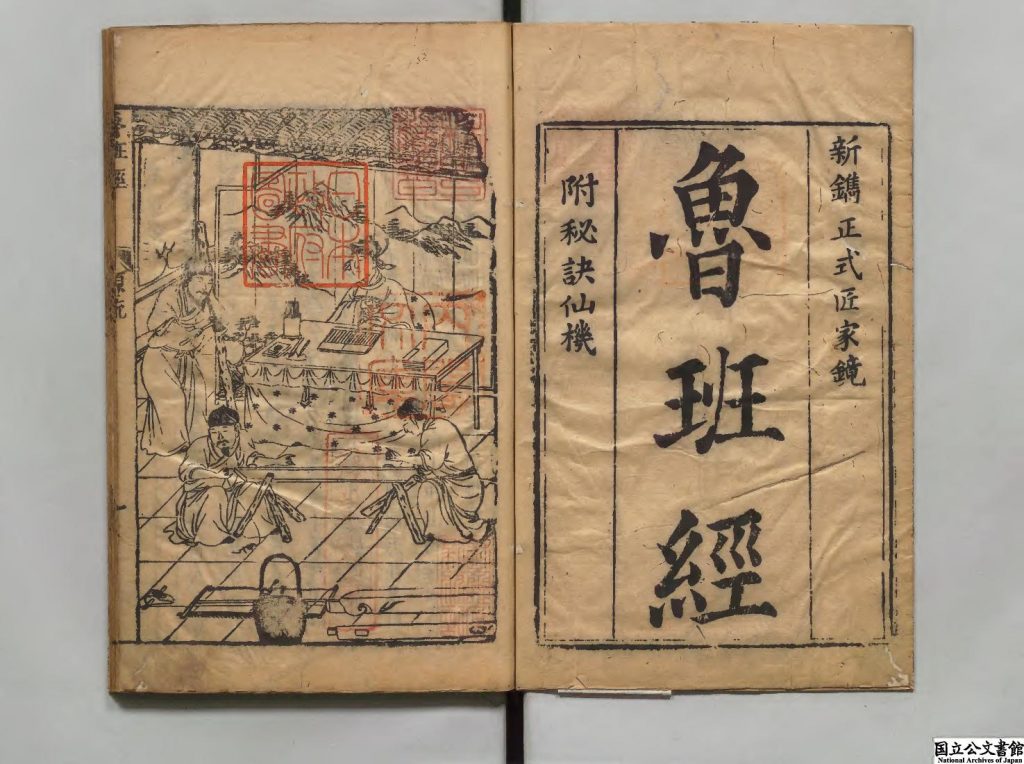 新鐫正式匠家鏡
魯班經
附秘訣仙機
日本
政府
圖書
國立公文書館
National Archives of Japan